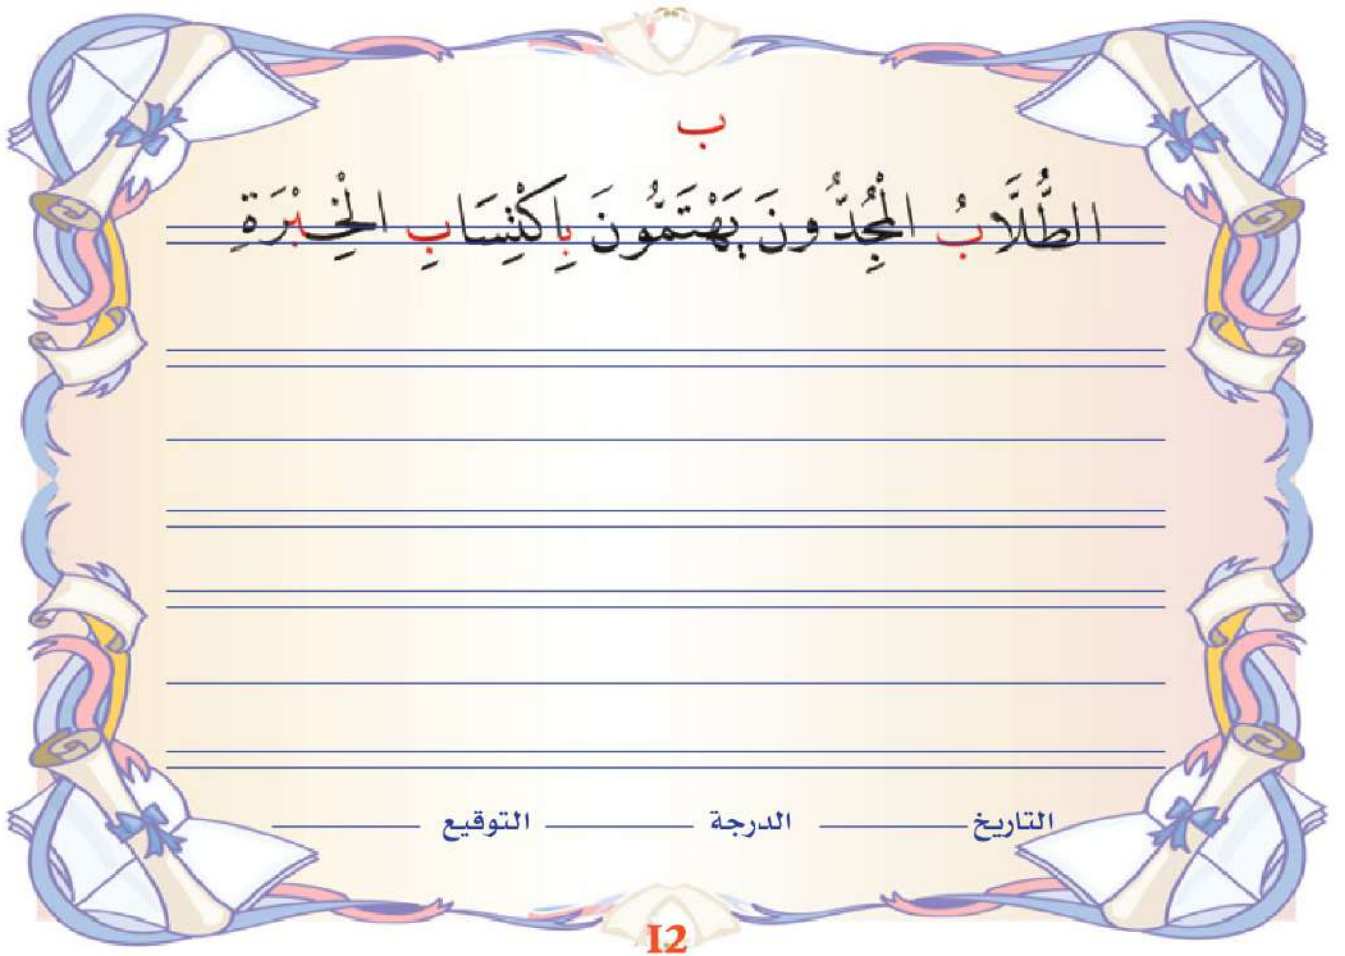 ب
الطُّلَّابُ الْمُجِدُّونَ يَهْتَمُّونَ بِاكْتِسَابِ الْخِبْرَةِ
التاريخ الدرجة التوقيع
12